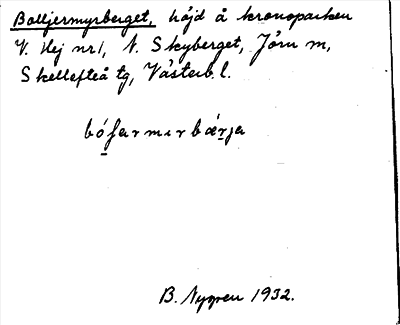 Bolljermyrberget, höjd å kronoparken
V. Hej nr 1, N. Skyberget, Jörn sn,
Skellefteå tg, Västerb. l.
B. Nygren 1932.